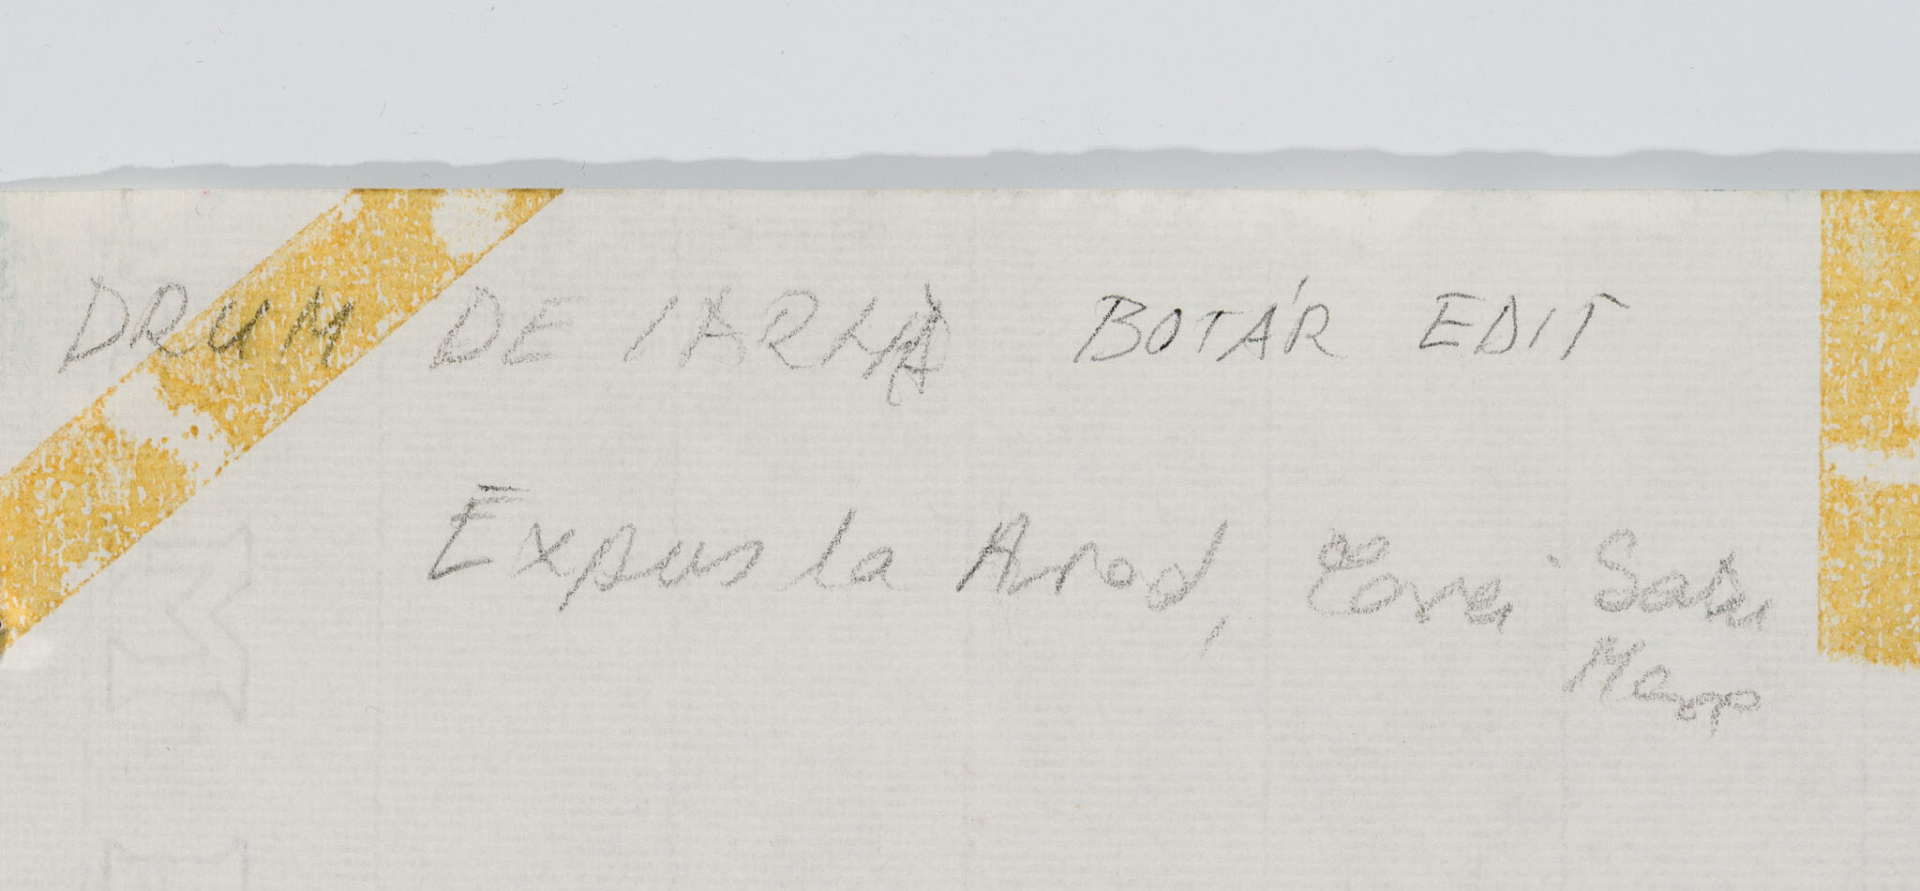 DRUM DE IARNĂ BOTÁR EDIT
Expus la Arad, Satu
Mare